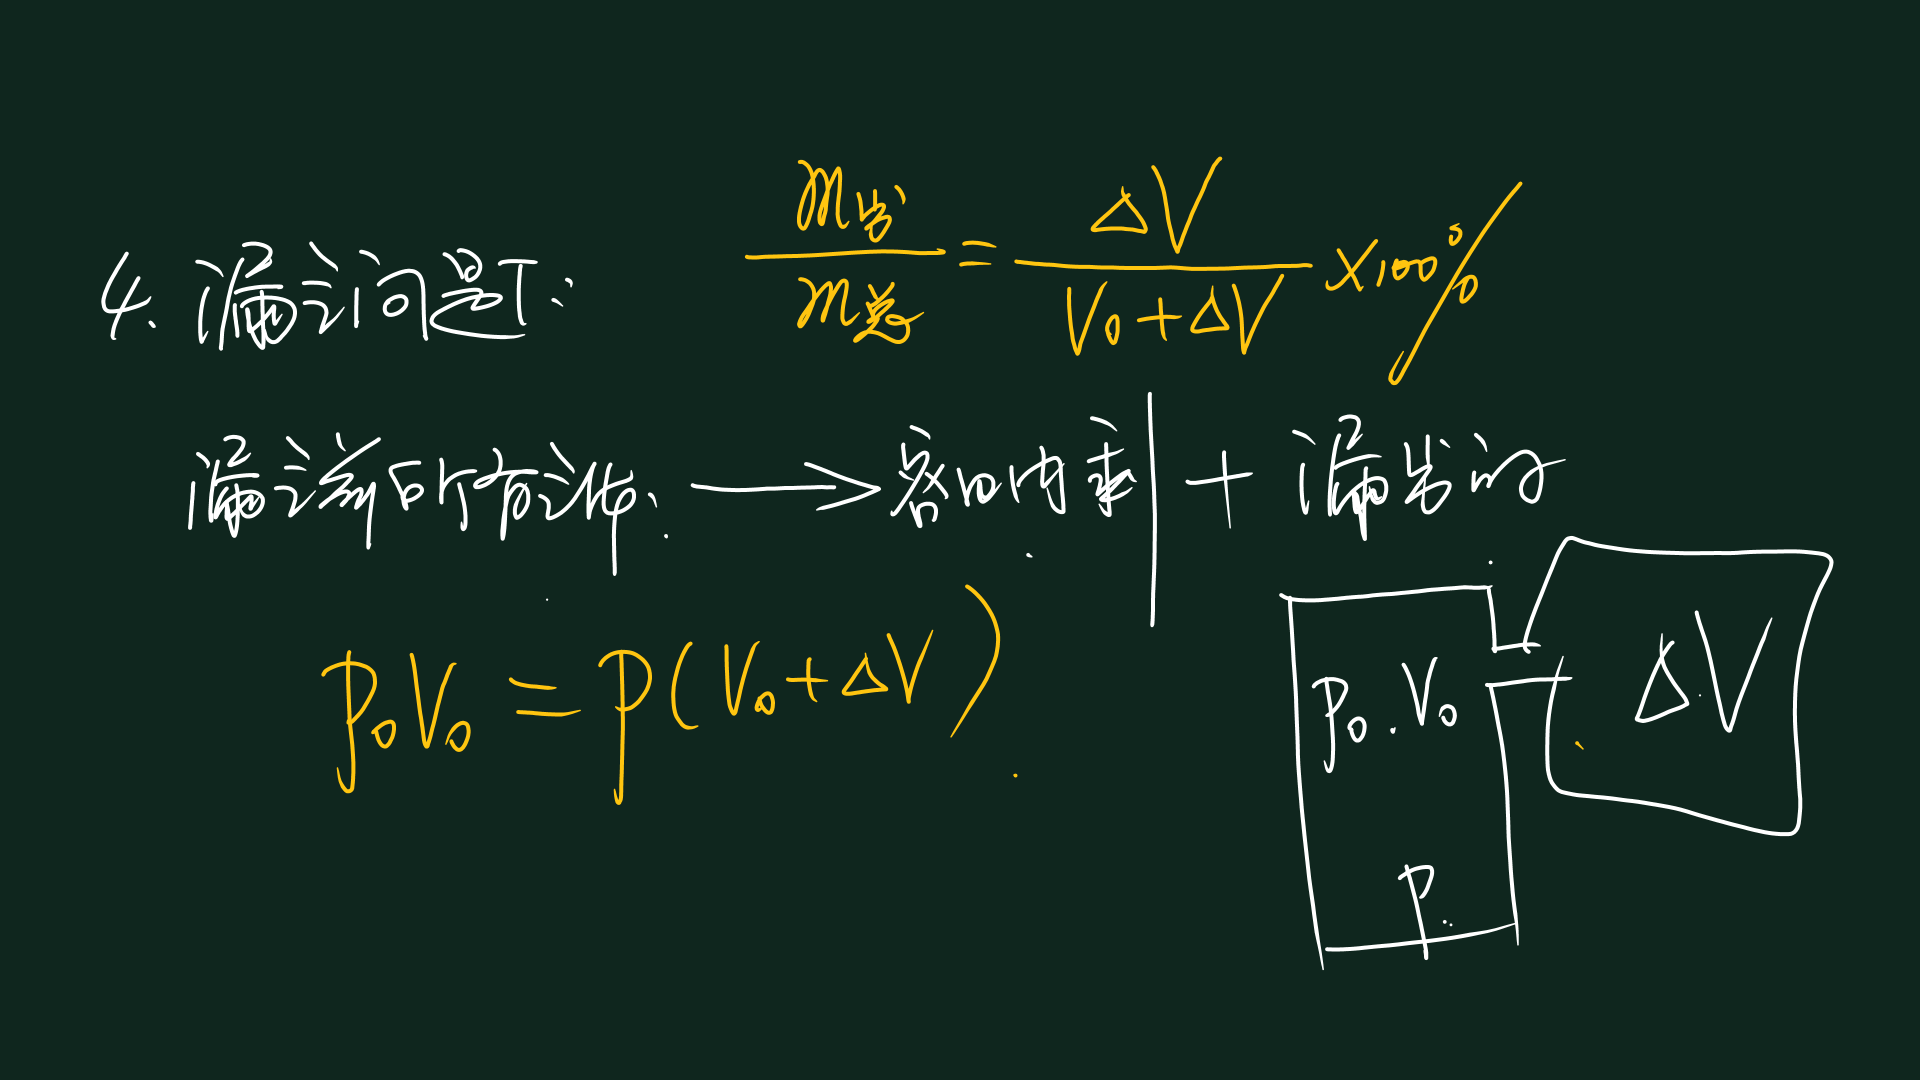 4. 漏气问题:
m出/m总 = ΔV/(V₀+ΔV) ×100%
漏气前所有气体. → 容口内剩 + 漏出的
p₀V₀ = p(V₀+ΔV)
p₀.V₀
ΔV
p